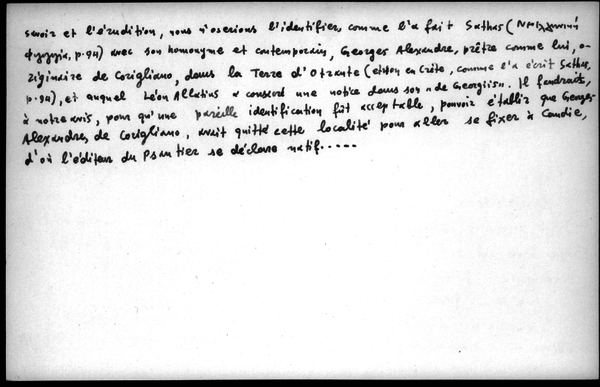 savoir et l'érudition, nous n'oserions l'identifier, comme l'a fait Sathas (Νεοελληνική
Φιλολογία, p. 94) avec son homonyme et contemporain, Georges Alexandre, prêtre comme lui, o-
riginaire de Corigliano, dans la Terre d'Otrante (et non en Crète, comme l'a écrit Sathas,
p. 94), et auquel Léon Allatius a consacré une notice dans son «de Georgiis». Il faudrait,
à notre avis, pour qu'une pareille identification fût acceptable, pouvoir établir que Georges
Alexandre, de Corigliano, avait quitté cette localité pour aller se fixer à Candie,
d'où l'éditeur du Psautier se déclare natif.....